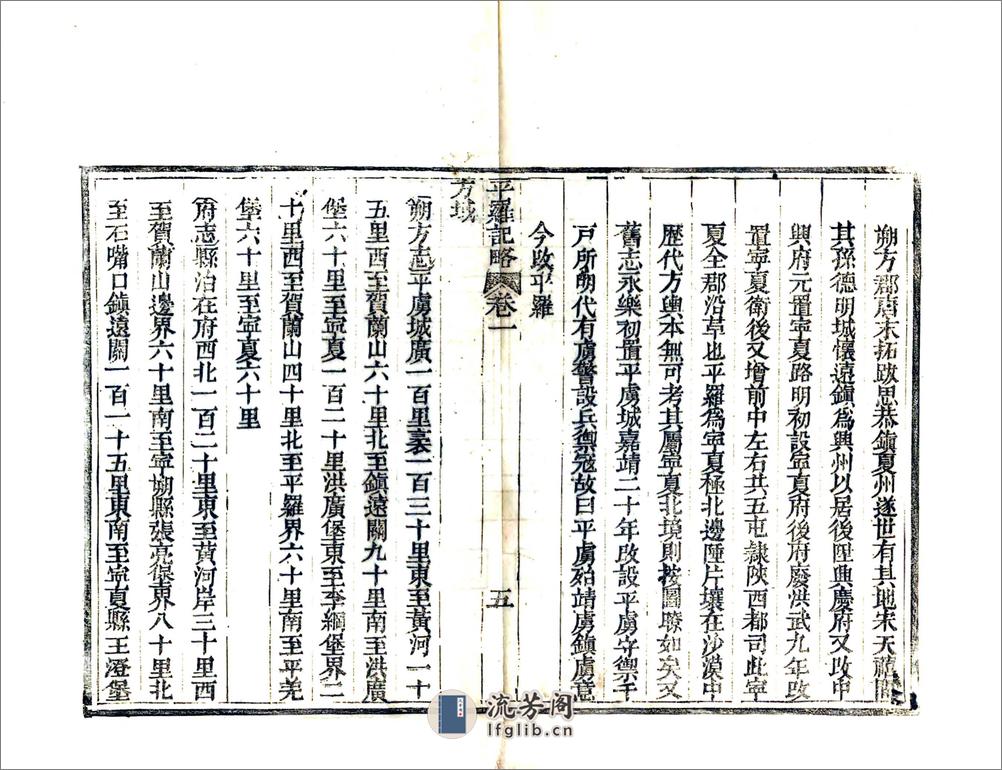 朔方郡唐末拓跋思恭鎭夏州遂世有其地宋天禧間
其孫德明城懷遠鎭爲興州以居後陞興慶府又改中
興府元置寧夏路明初設寧夏府後府廢洪武九年改
置寧夏衛後又增前中左右共五屯隸陝西都司此寧
夏全郡沿革也平羅爲寧夏極北邊陲片壤在沙漠中
歷代方輿本無可考其屬寧夏北境則按圖瞭如矣又
舊志永樂初置平虜城嘉靖二十年改設平虜守禦千
戸所明代有虜警設兵禦寇故曰平虜始靖虜鎭虜意
今改平羅
平羅記略 卷一 五
方域
朔方志平虜城廣一百里袤一百三十里東至黃河一十
五里西至賀蘭山六十里北至鎭遠關九十里南至洪廣
堡六十里至寧夏一百二十里洪廣堡東至李綱堡界二
十里西至賀蘭山四十里北至平羅界六十里南至平羌
堡六十里至寧夏六十里
府志縣治在府西北一百二十里東至黃河岸三十里西
至賀蘭山邊界六十里南至寧朔縣張亮堡界八十里北
至石嘴口鎭遠關一百一十五里東南至寧夏縣王澄堡
流芳阁
lfglib.cn